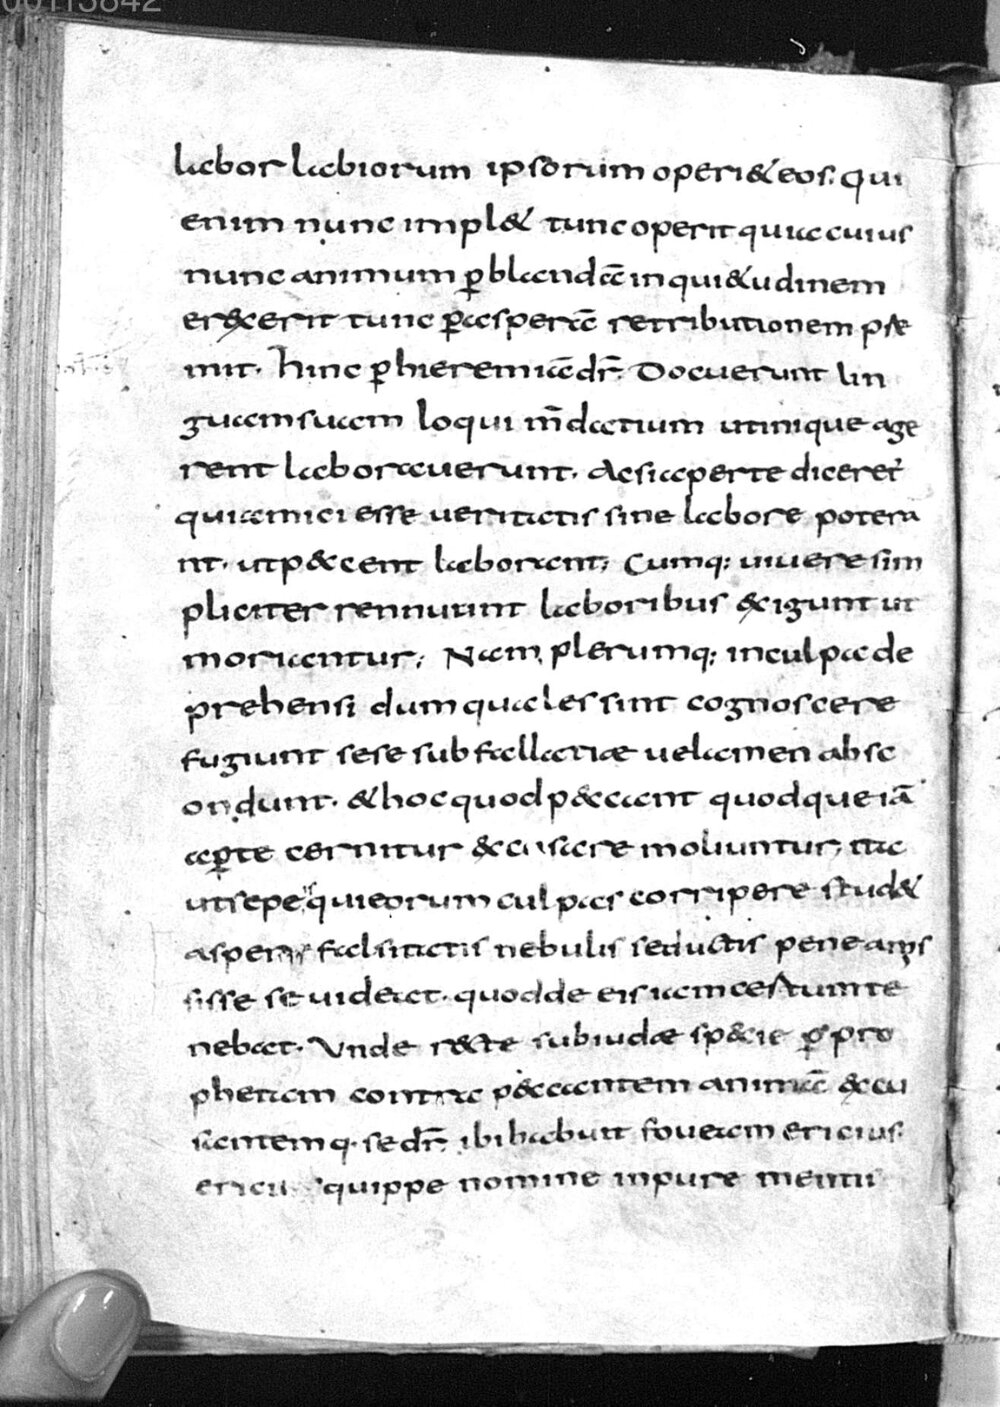 labor labiorum ipsorum operi&eos. Qui
enim nunc impl& tunc operit quia cuius
nunc animum p̲ blandā inqui&udinem
er&xerit tunc p̲asperā retributionem pre
mit. hinc p̲hieremiā dr̄. Docuerunt lin
guam suam loqui m̄datium utinique age
rent laboraverunt. Ac si aperte diceret
qui amici esse ueritatis sine labore potera
nt. ut p&cent laborant; Cumq: uiuere sim
pliciter rennuunt laboribus &xigunt ut
moriantur; Nam plerumq: inculpa de
prehensi dum quales sint cognoscere
fugiunt sese sub fallatiæ uelamen absc
ondunt. & hoc quod p&cant quodque iā
ap̲te cernitur &cusare moliuntur, ita
ut sepe qui eorum culpas corripere stud&
aspersis falsitatis nebulis seductus pene amis
sisse se uideat. quod de eis iam cestum te
nebat. Unde r&cte sub iudæ sp&cie p̲ pro
phetam contra p&cantem animā &cu
santemq. se dr̄. ibi habuit foueam ericius.
ericii quippe nomine inpure mentii